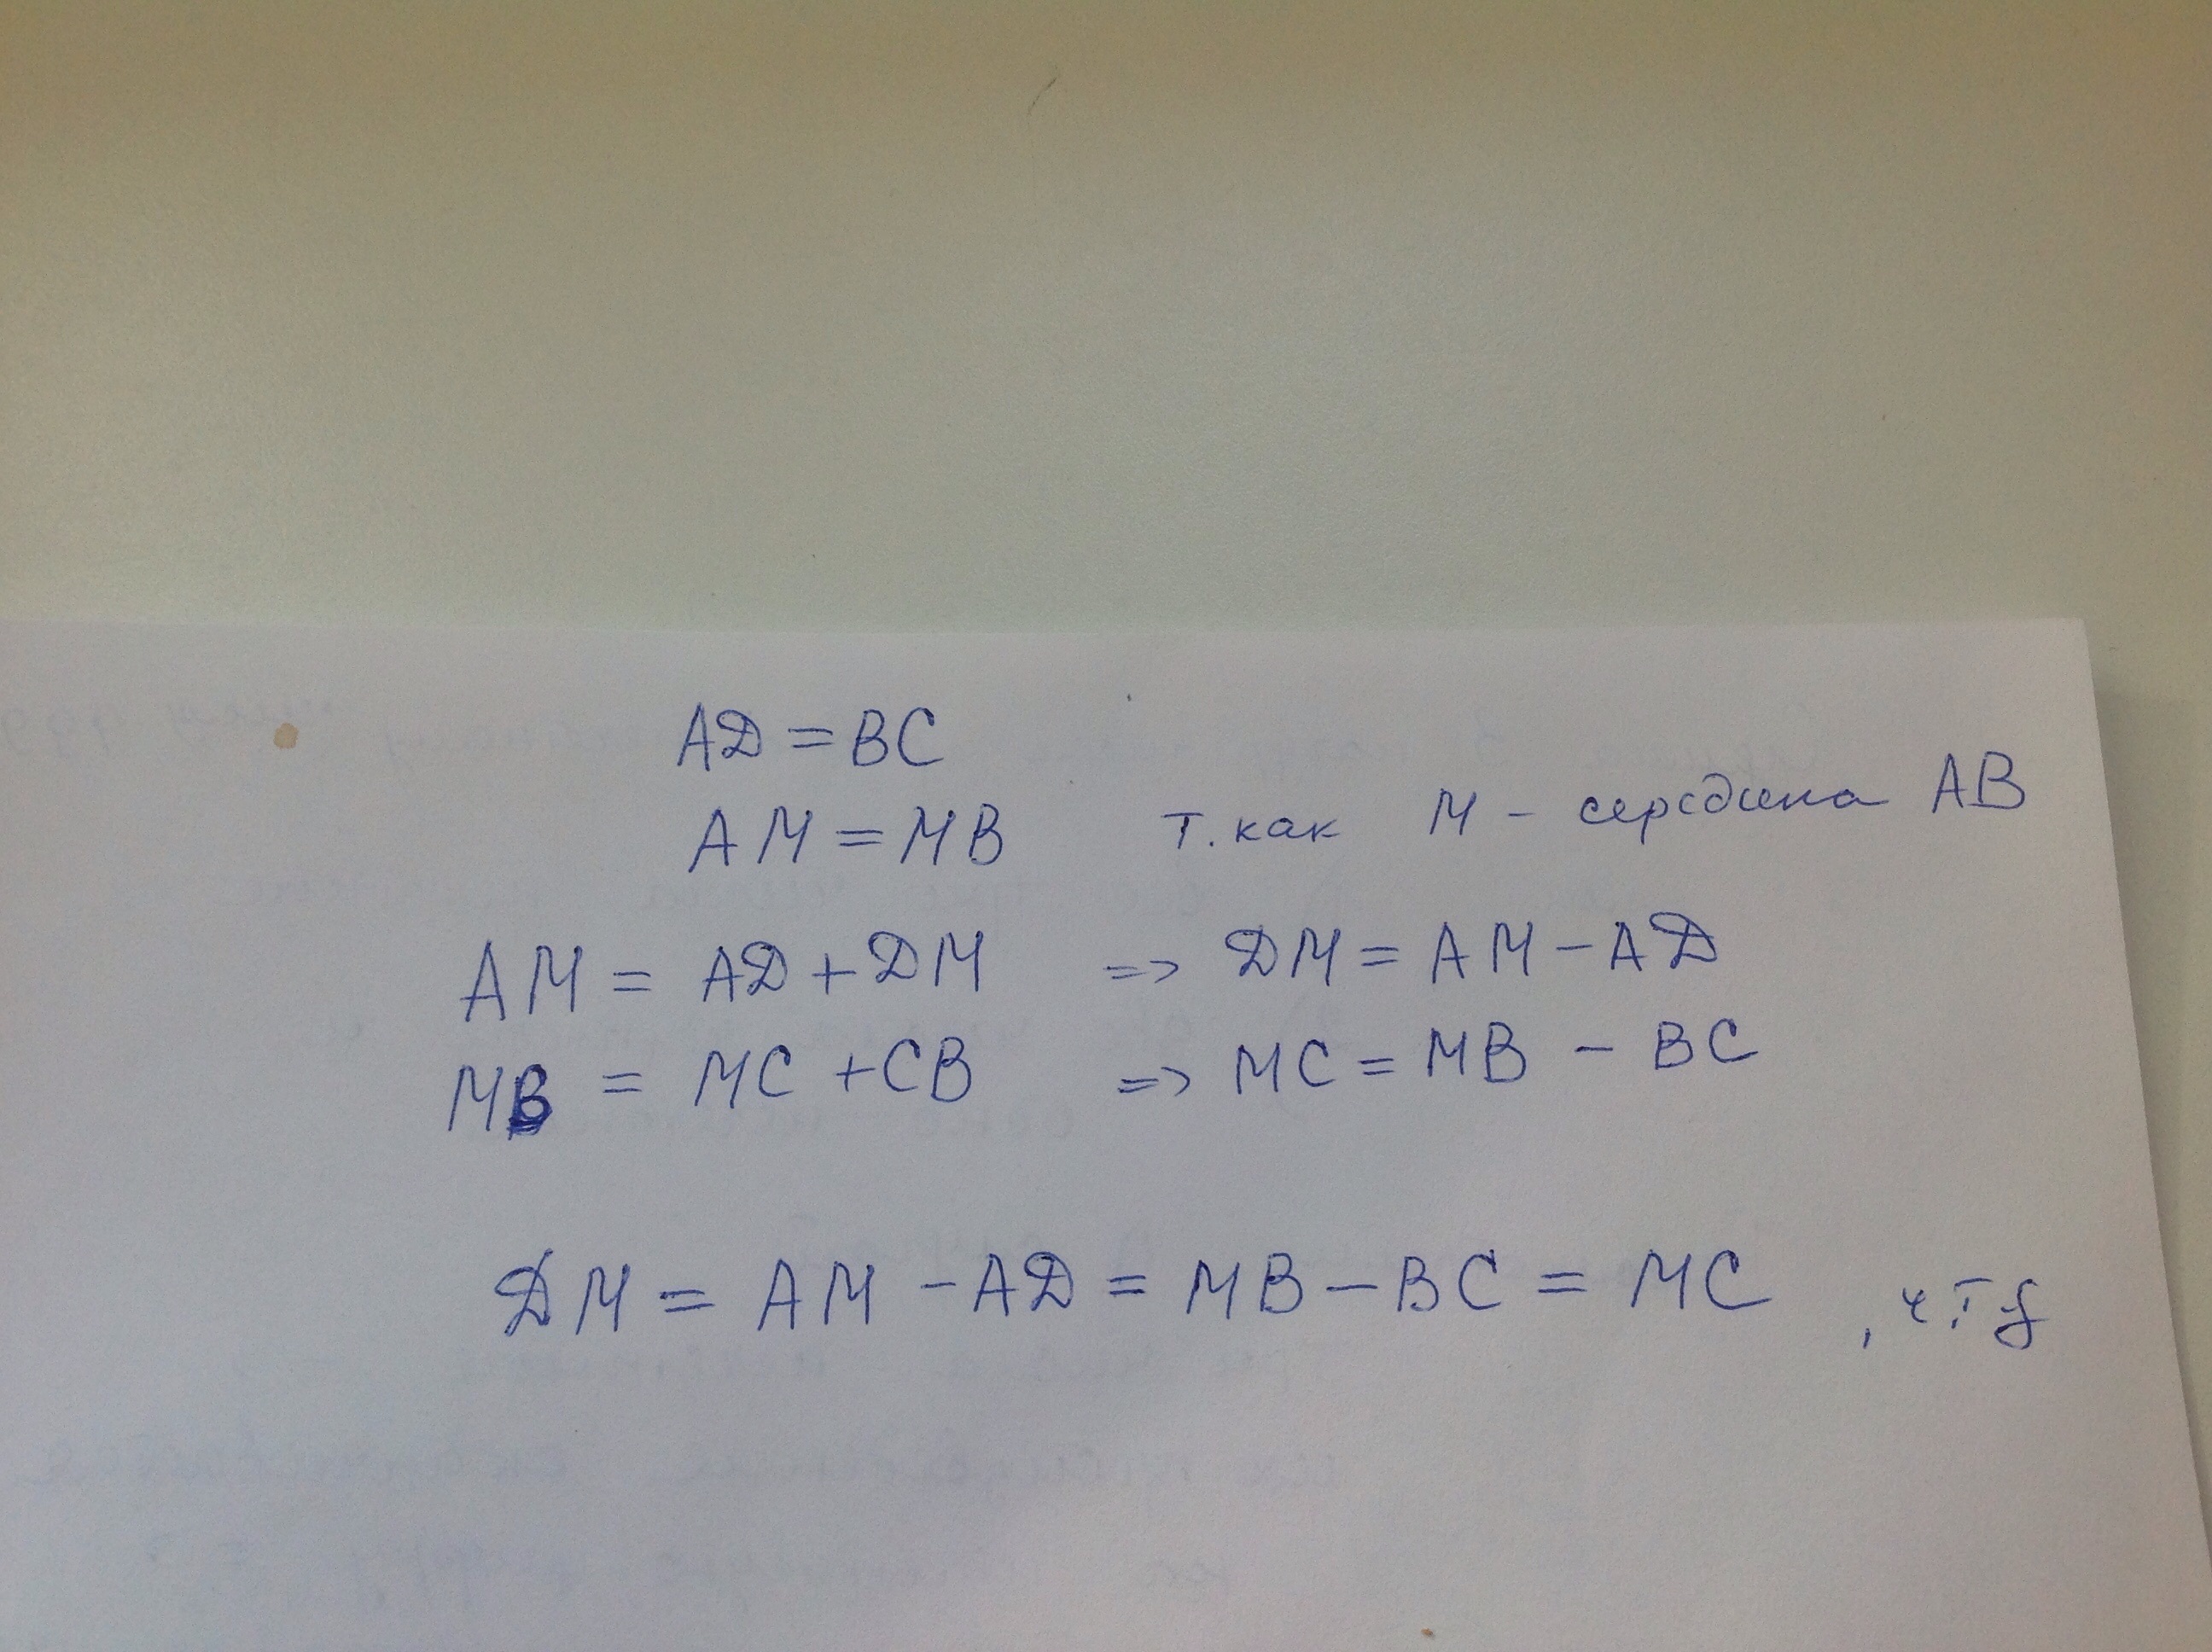 AD = BC
AM = MB т. как M - середина AB
AM = AD + DM => DM = AM - AD
MB = MC + CB => MC = MB - BC
DM = AM - AD = MB - BC = MC , чтд